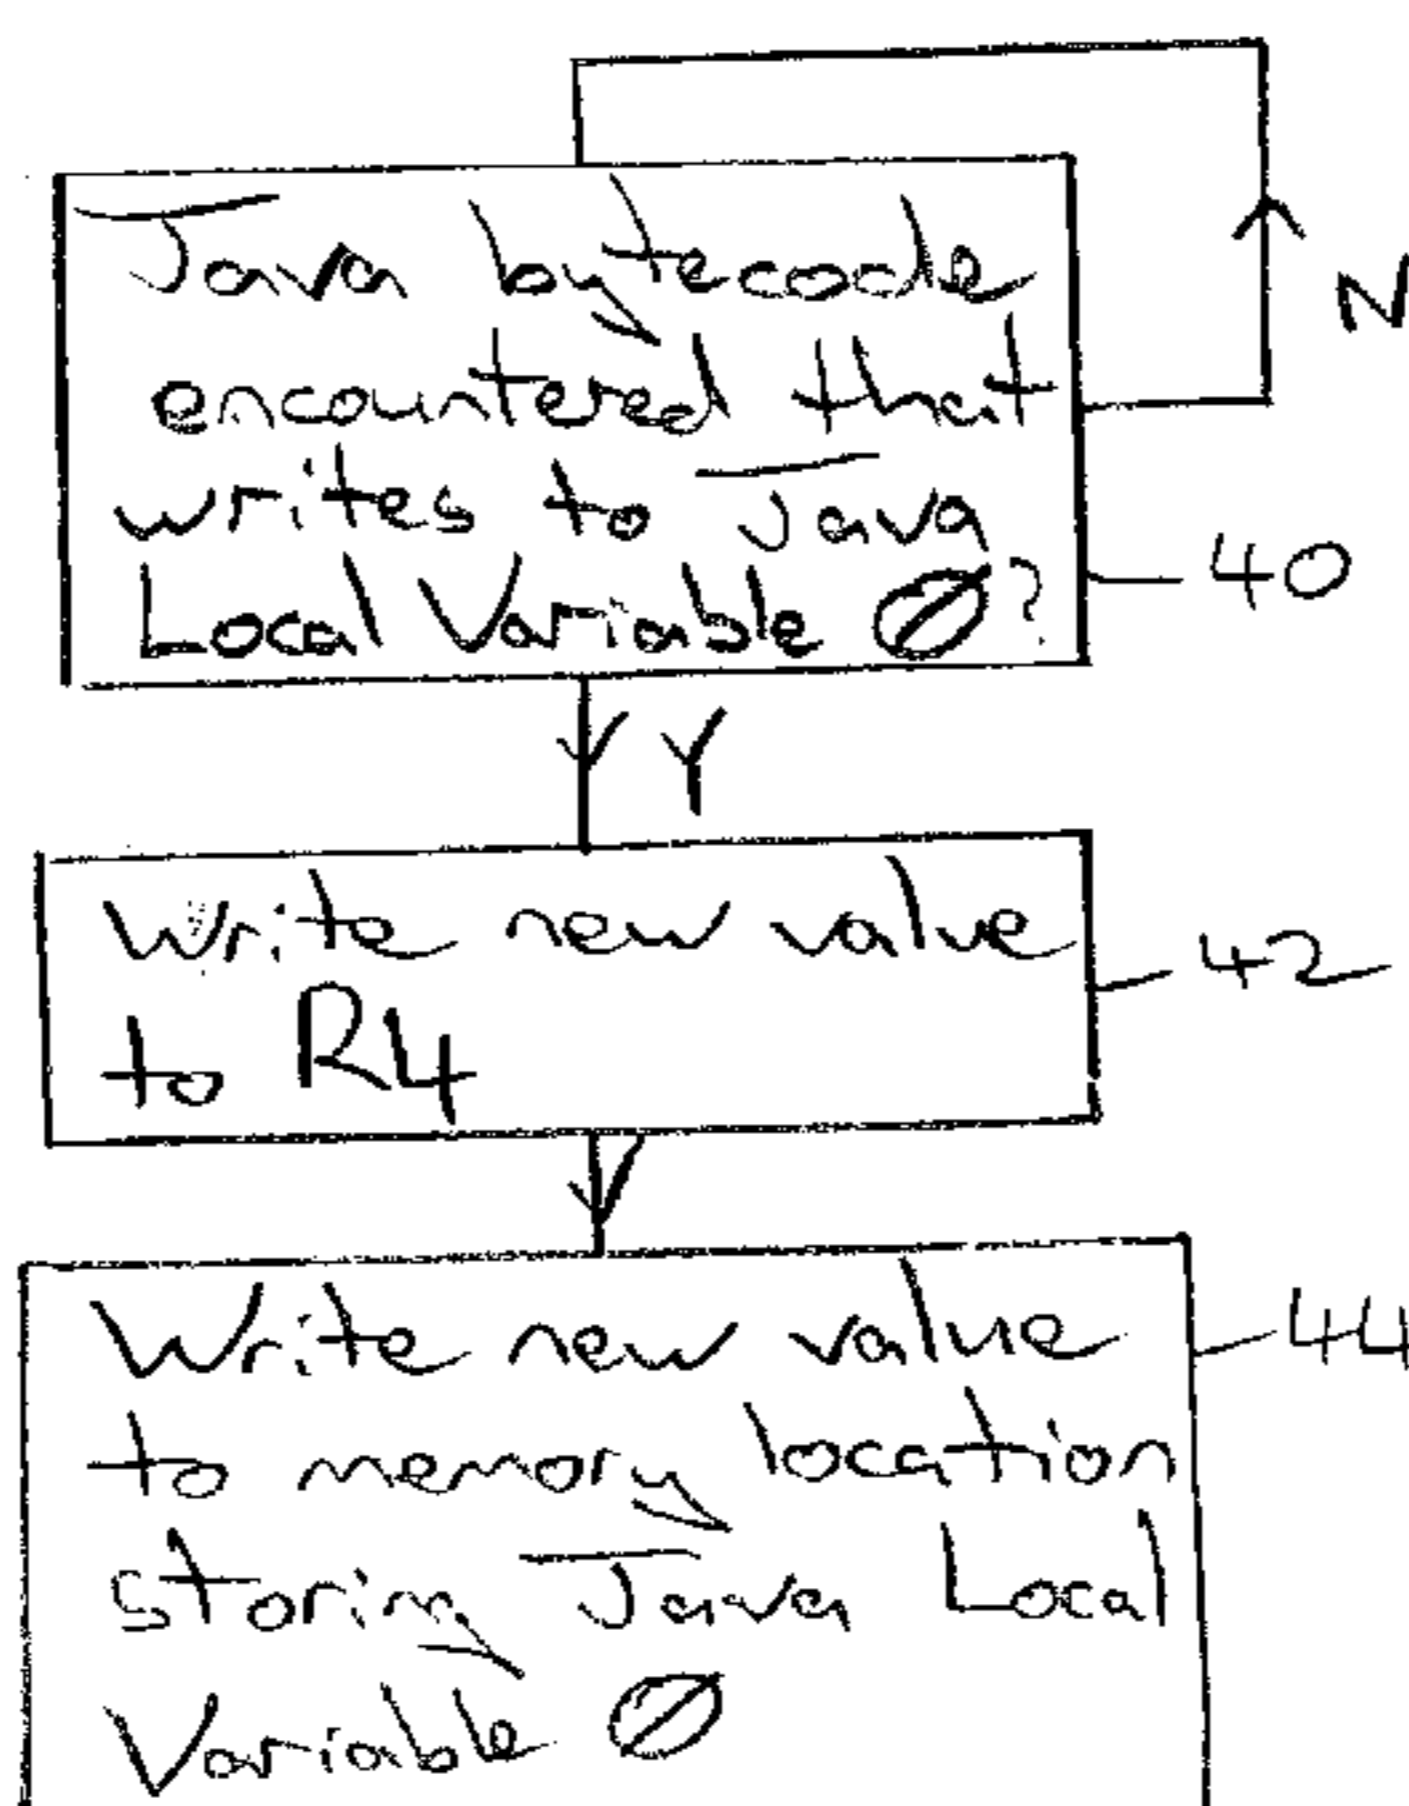 Java bytecode
encountered that
N
writes to Java
Local Variable Ø?
40
Y
Write new value
42
to R4
Write new value
44
to memory location
storing Java Local
Variable Ø